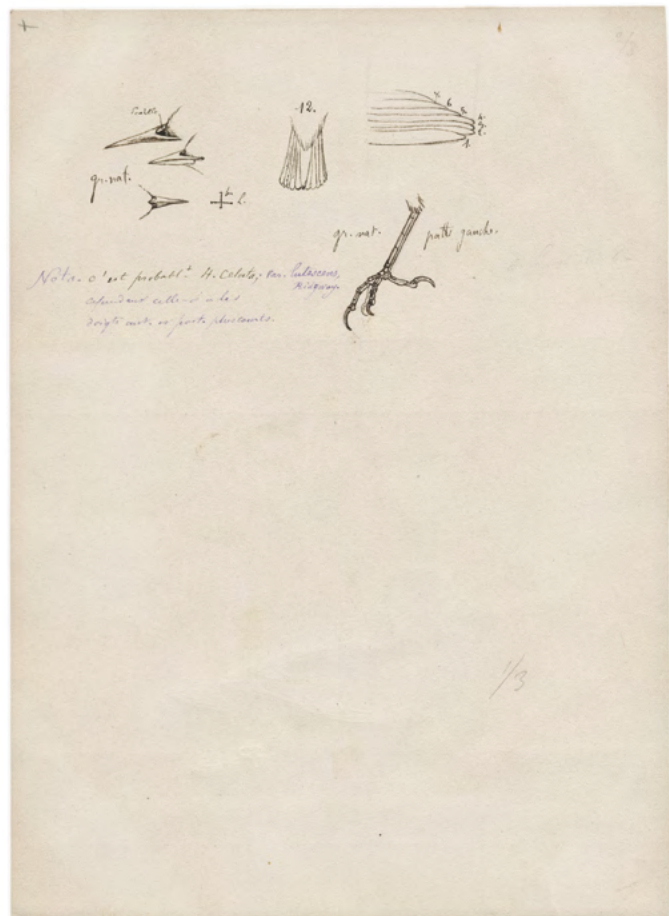 12.
7.
6.
5.
4.
3.
2.
1.
gr. nat.
2.
gr. nat.
patte gauche.
Nota. C'est probabl.t H. Celata, var. lutescens,
Ridgway.
cependant celle-ci a les
doigts ant. et post. plus courts.
1/3